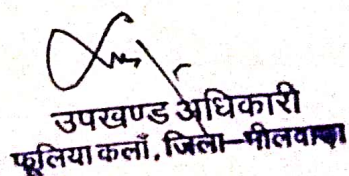 उपखण्ड अधिकारी
फूलिया कलाँ, जिला–भीलवाड़ा